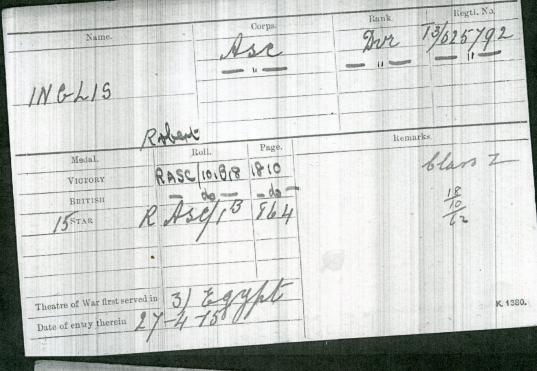 Name. Corps. Rank. Regtl. No.
Asc Dvr T3/025792
" " "
INGLIS
Robert
Medal. Roll. Page. Remarks.
VICTORY RASC/101B18 1810 Class Z
BRITISH do do 18
15 STAR R Asc/1B 864 10
62
Theatre of War first served in 3) Egypt
Date of entry therein 27-4-15
K 1380.